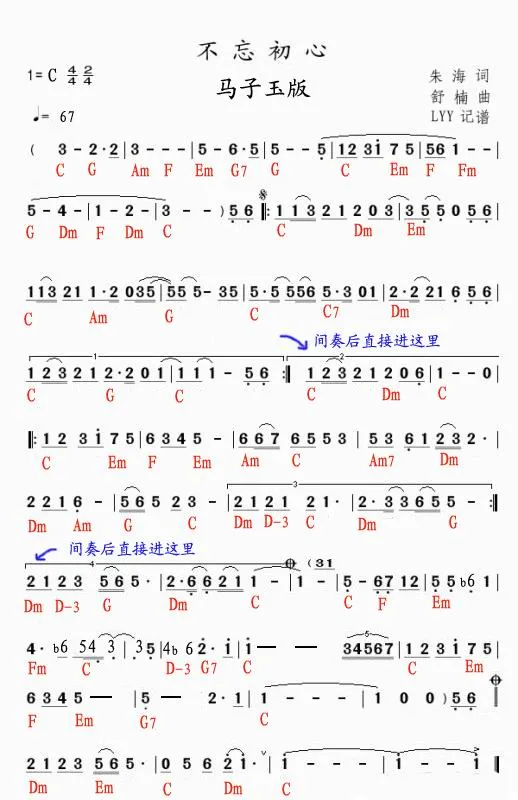 不忘初心
1= C 4/4 2/4
马子玉版
朱海词
舒楠曲
♩= 67
LYY 记谱
( 3 - 2·2 | 3 - - - | 5 - 6·5 | 5 - - 5 | 12 3i 7 5 | 561 - - |
C G Am F Em G7 G C Em F Fm
5 - 4 - | 1 - 2 - | 3 - - ) 56 ‖: 113 21 203 | 355 05 56 |
G Dm F Dm C C Dm Em
113 21 1·2 035 | 555- 35 | 5·5 556 5·3 01 | 2·2 221 6 56 |
C Am G C C7 Dm
间奏后直接进这里
1
2
12321 2·201 | 111 - 56 :‖ 12321 1206 | 1 - - 0 |
C G C C Dm C
‖: 12 3i 75 | 6345 - | 667 6553 | 53 61 232· |
C Em F Em Am C Am7 Dm
3
2216 - | 565 23 - | 2121 21· | 2·33655 - :‖
Dm Am G C Dm D-3 C Dm G
间奏后直接进这里
4
(31
2123 565· | 2·66211 - | 1 - | 5 - 6712 | 55 b6 1 |
Dm D-3 G Dm C C F Em
4· b6 54 3 | 35 4b6 2·i | i — — | 34567 | 12 3i 75 |
5
Fm C D-3 G7 C C Em
6345 — | 5 — 2·1 | 1 - - - | 1 0 0 ) 56 |
F Em G7 C
2123 565· | 0c 056 21· | 1 - - - | i - i · i ‖
Dm Em C Dm C